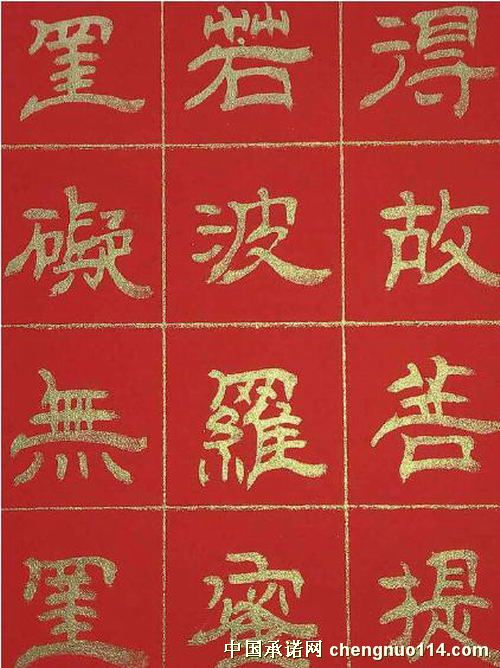 得故菩提
若波羅蜜
罣礙無罣
中国承诺网 chengnuo114.com